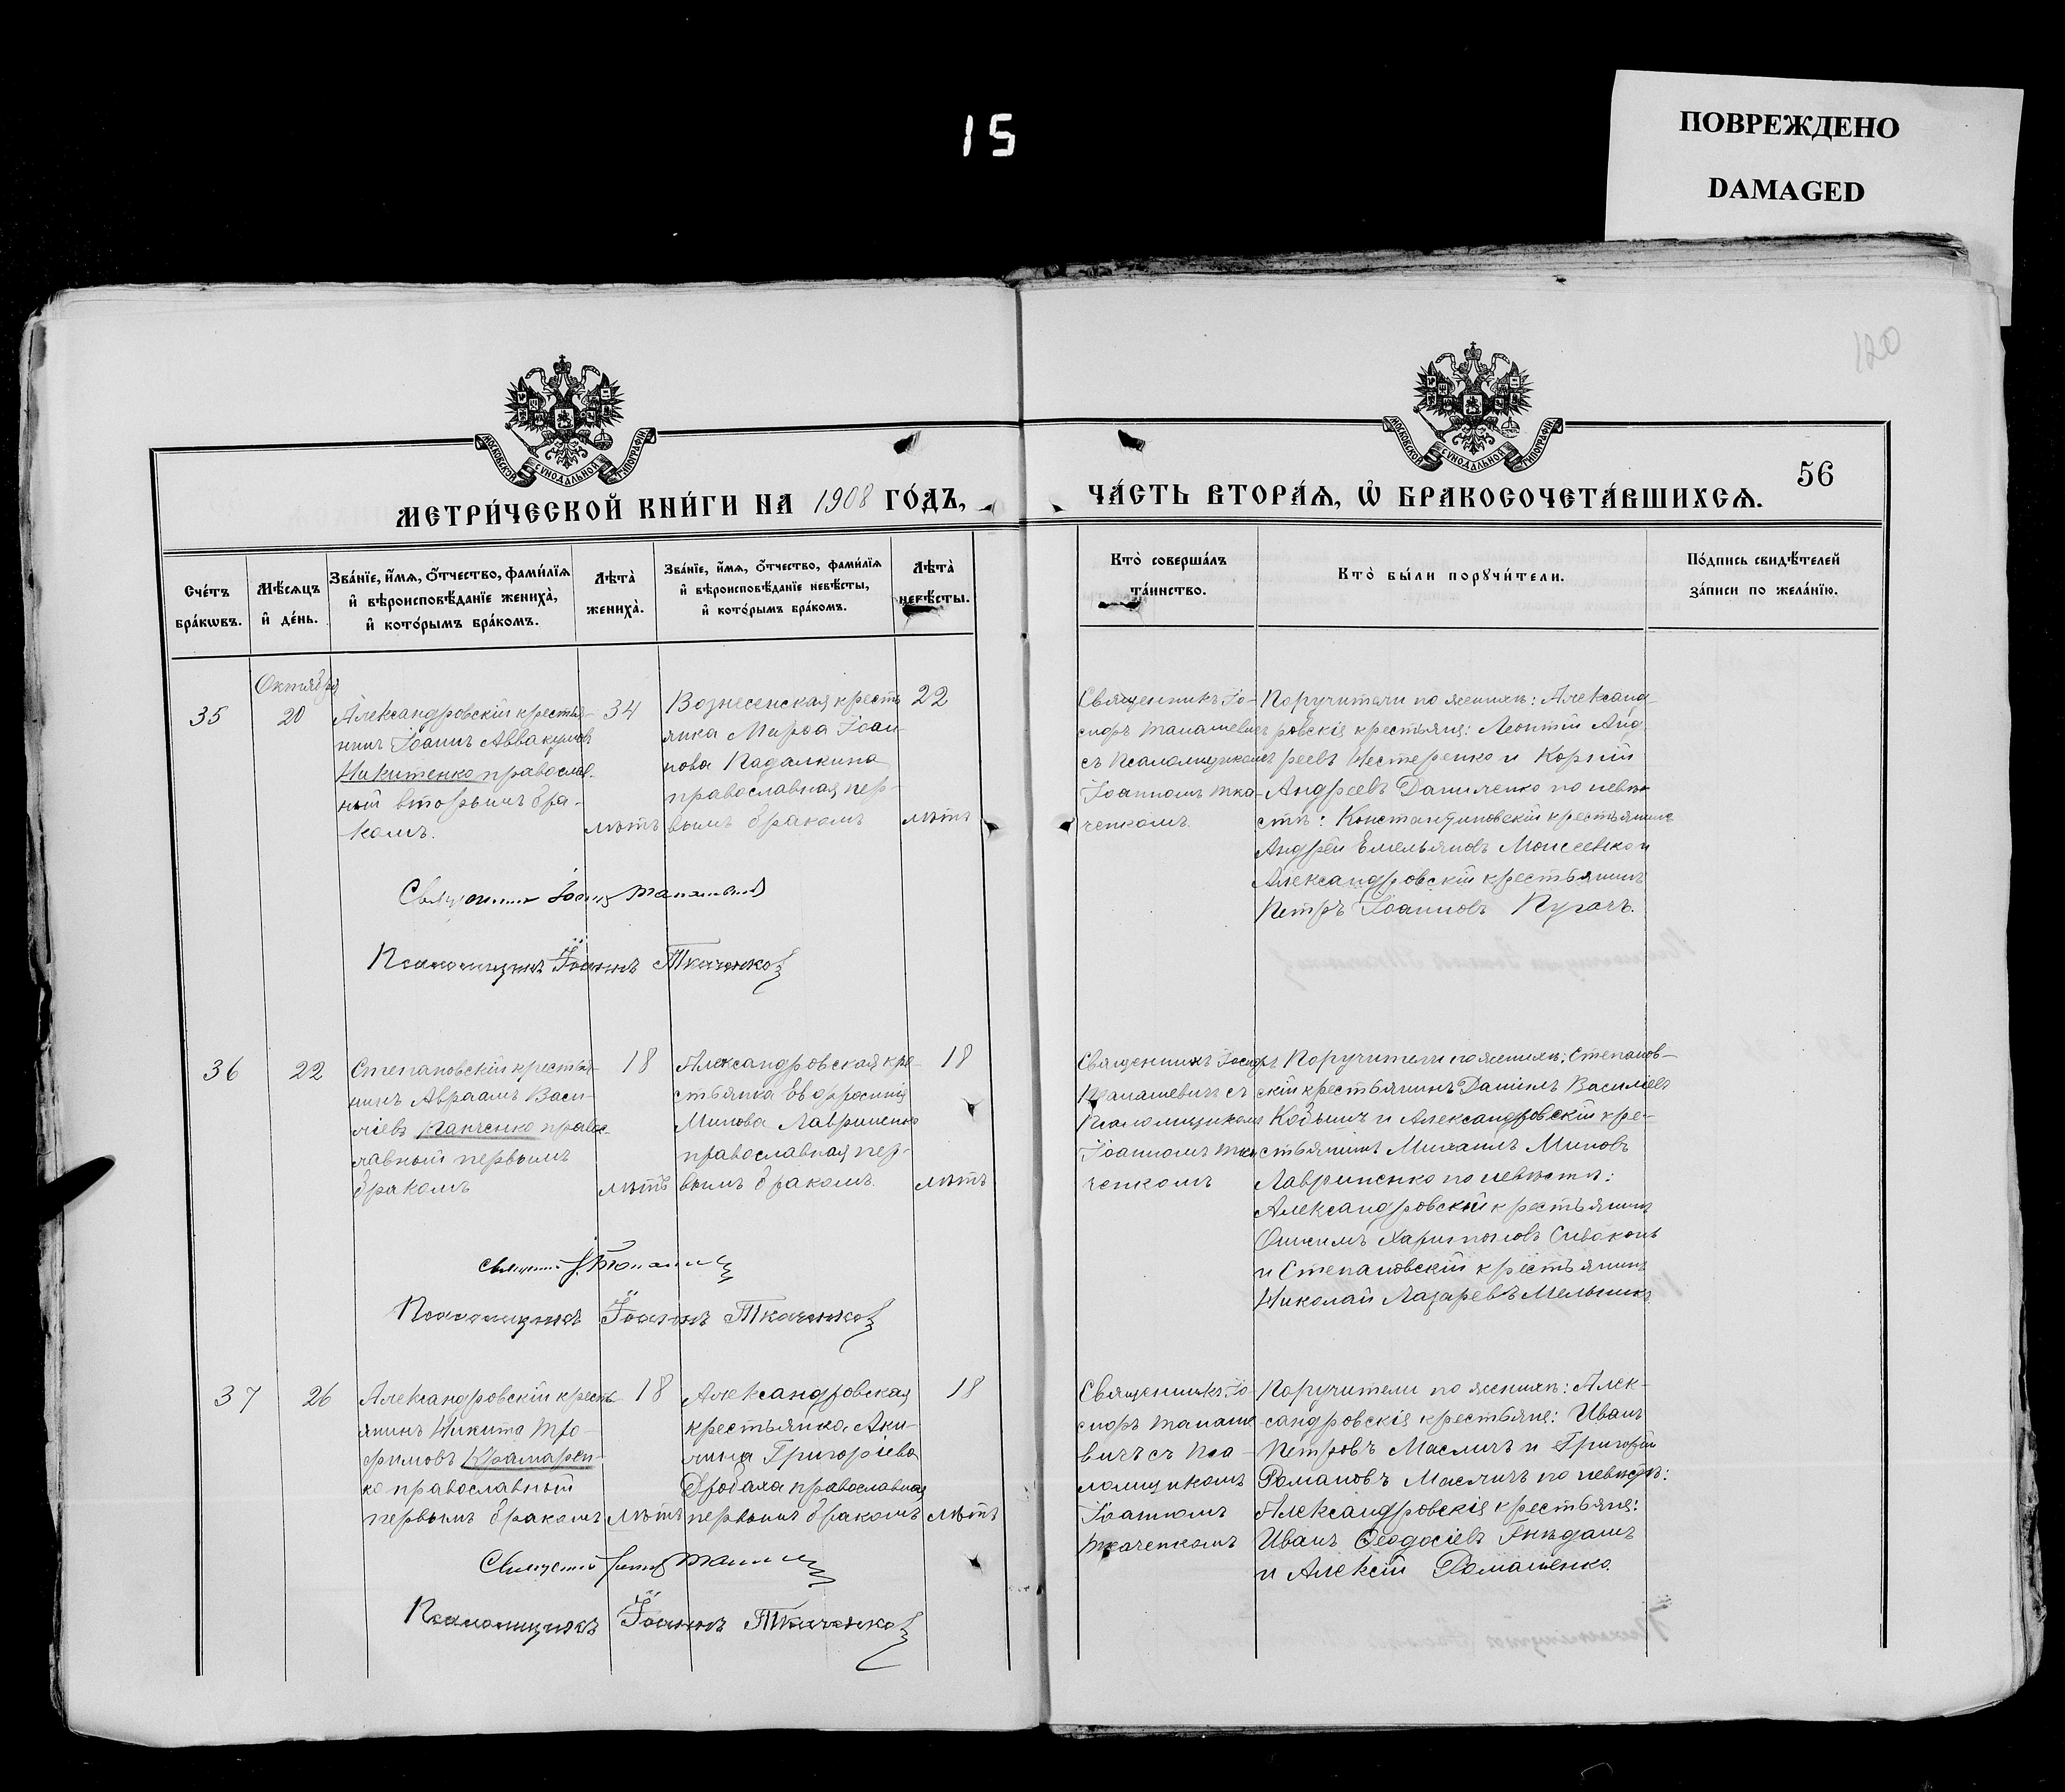 15
ПОВРЕЖДЕНО
DAMAGED
120
МОСКОВСКОЙ СѴНОДАЛЬНОЙ ТИПОГРАФІИ
МОСКОВСКОЙ СѴНОДАЛЬНОЙ ТИПОГРАФІИ
56
МЕТРИ́ЧЕСКОЙ КНИ́ГИ НА 1908 ГО́ДЪ,
ЧА́СТЬ ВТОРА́Я, Ѡ҆ БРАКОСОЧЕТА́ВШИХСЯ.
Сче́тъ бра́кѡвъ.
Мѣ́сяцъ и҆ де́нь.
Зва́нїе, и҆́мя, ѻ҆́тчество, фами́лїя
и҆ вѣроисповѣ́данїе жениха̀,
и҆ кото́рымъ бра́комъ.
Лѣта̀ жениха̀.
Зва́нїе, и҆́мя, ѻ҆́тчество, фами́лїя
и҆ вѣроисповѣ́данїе невѣ́сты,
и҆ кото́рымъ бра́комъ.
Лѣта̀ невѣ́сты.
Кто̀ соверша́лъ
та́инство.
Кто̀ бы́ли порꙋчи́тели.
По́дпись свидѣ́телей
за́писи по жела́нїю.
35
Октября
20
Александровскій крестья-
нинъ Іоаннъ Аввакумовъ
Никитенко православ-
ный вторымъ бра-
комъ.
34
лѣтъ
Вознесенская кресть
янка Марѳа Іоан-
нова Падалкина
православная, пер-
вымъ бракомъ
22
лѣтъ
Священникъ Іо-
сифъ Танашевичъ
съ Псаломщикомъ
Іоанномъ Тка-
ченкомъ.
Поручители по женихѣ: Александ-
ровскіе крестьяне: Леонтій Анд-
реевъ Нестеренко и Корній
Андреевъ Даниленко по невѣ
стѣ: Константиновскій крестьянинъ
Андрей Емельяновъ Моисеенко и
Александровскій крестьянинъ
Петръ Іоанновъ Пугачъ.
Псаломщикъ Іоаннъ Ткаченко
36
22
Степановскій крестья-
нинъ Авраамъ Васи-
ліевъ Панченко правос-
лавный первымъ
бракомъ
18
лѣтъ
Александровская кре-
стьянка Евфросинія
Минова Лавриненко
православная, пер-
вымъ бракомъ.
18
лѣтъ
Священникъ Іосифъ
Танашевичъ съ
Псаломщикомъ
Іоанномъ Тка
ченкомъ
Поручители по женихѣ: Степанов-
скій крестьянинъ Даніилъ Василіевъ
и Александровскій кре-
стьянинъ Михаилъ Миновъ
Лавриненко по невѣстѣ:
Александровскій крестьянинъ
Онисимъ Харитоновъ Сивоконь
и Степановскій крестьянинъ
Николай Лазаревъ Мельникъ.
Псаломщикъ Іоаннъ Ткаченко
37
26
Александровскій кресть-
янинъ Никита Тро-
фимовъ Крамарен-
ко православный
первымъ бракомъ
18
лѣтъ
Александровская
крестьянка Аки-
лина Григоріева
православная
первымъ бракомъ
18
лѣтъ
Священникъ Іо-
сифъ Танаше
вичъ съ Пса-
ломщикомъ
Іоанномъ
Ткаченкомъ
Поручители по женихѣ: Алек-
сандровскіе крестьяне: Иванъ
Петровъ Масличъ и Григорій
Романовъ Масличъ по невѣстѣ:
Александровскіе крестьяне:
Иванъ Ѳеодосіевъ
и Алексій Романенко.
Псаломщикъ Іоаннъ Ткаченко